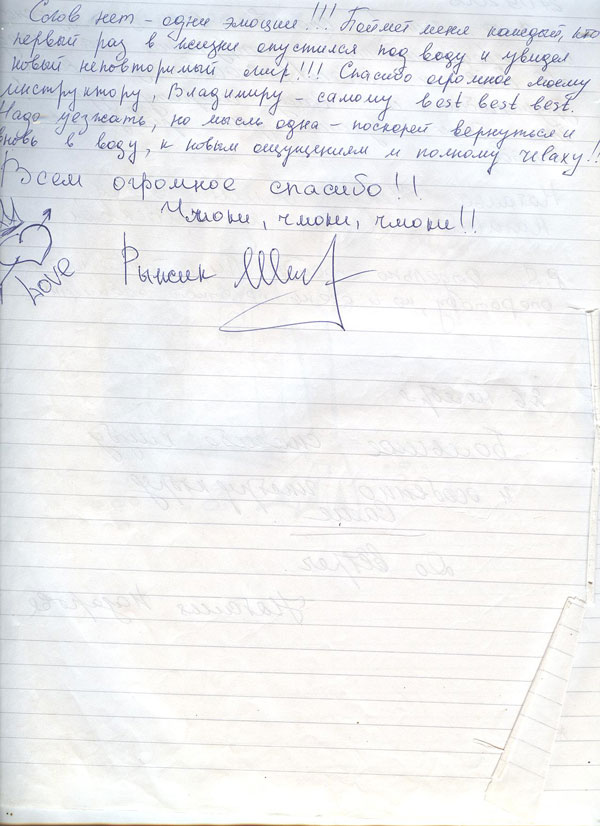 Слов нет - одни эмоции!!! Поймёт меня каждый, кто
первый раз в жизни опустился под воду и увидел
новый неповторимый мир!!! Спасибо огромное моему
инструктору, Владимиру - самому best best best.
Надо уезжать, но мысль одна - поскорей вернуться и
вновь в воду, к новым ощущениям и полному !!
Всем огромное спасибо!!
Чмоки, чмоки, чмоки!!
Love
Рыжик